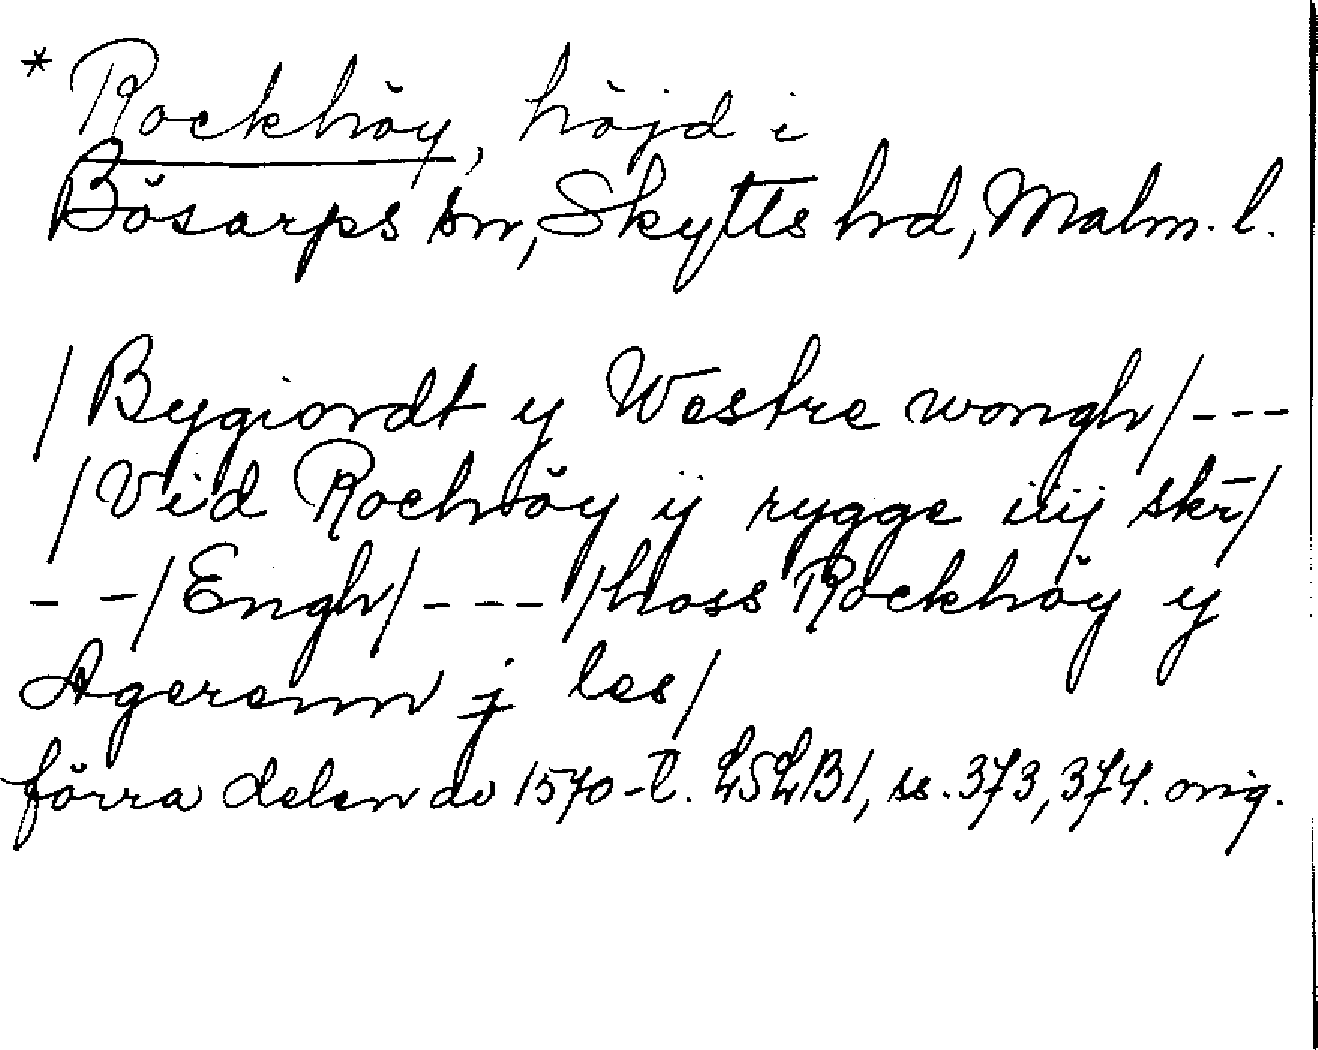 * Rockhöy, höjd i
Bösarps sn, Skytts hd, Malm. l.
/Bygiordt y Westre wongh/---
/Vid Rochöy ij rygge iiij skr/
- -/Engh/--- /hoss Rockhöy y
Agerenn j les/
förra delen av 1570-t. LSLB1, ss. 373, 374. orig.